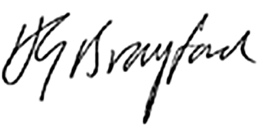 HG Brayford